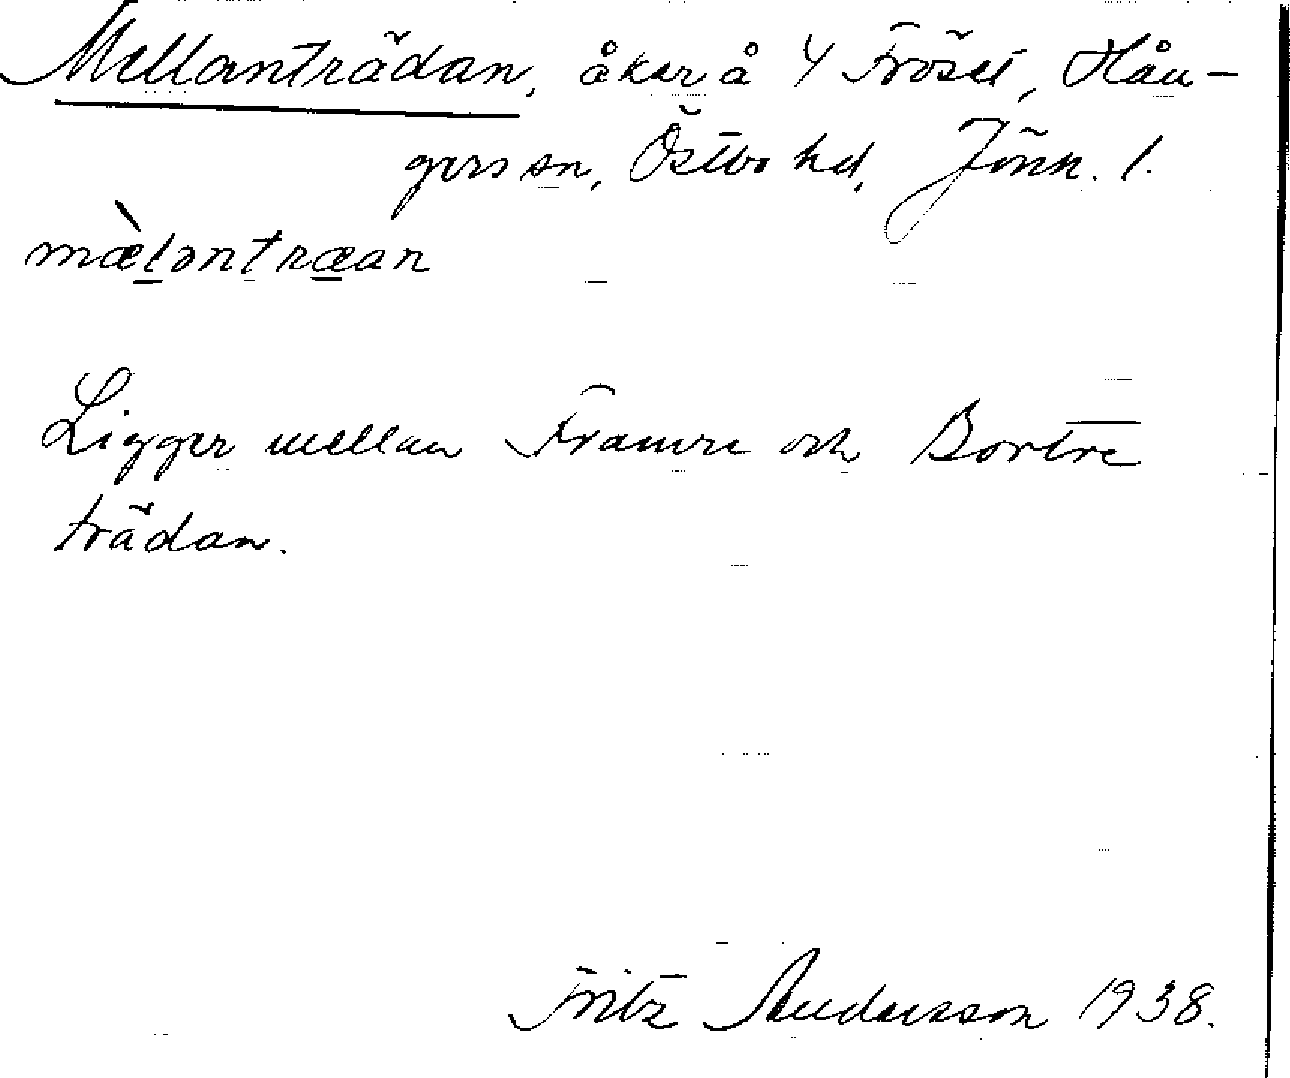 Mellanträdan, åker å 4 Fröset, Hån-
gers sn, Östbo hd, Jönk. l.
mæ̀lantræan
Ligger mellan Framre och Bortre
trädan.
Fritz Andersson 1938.